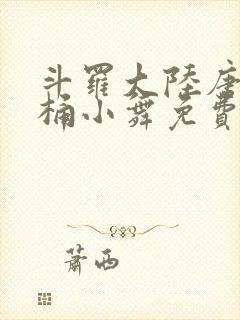 斗羅大陸唐
桶小舞免費
蕭西